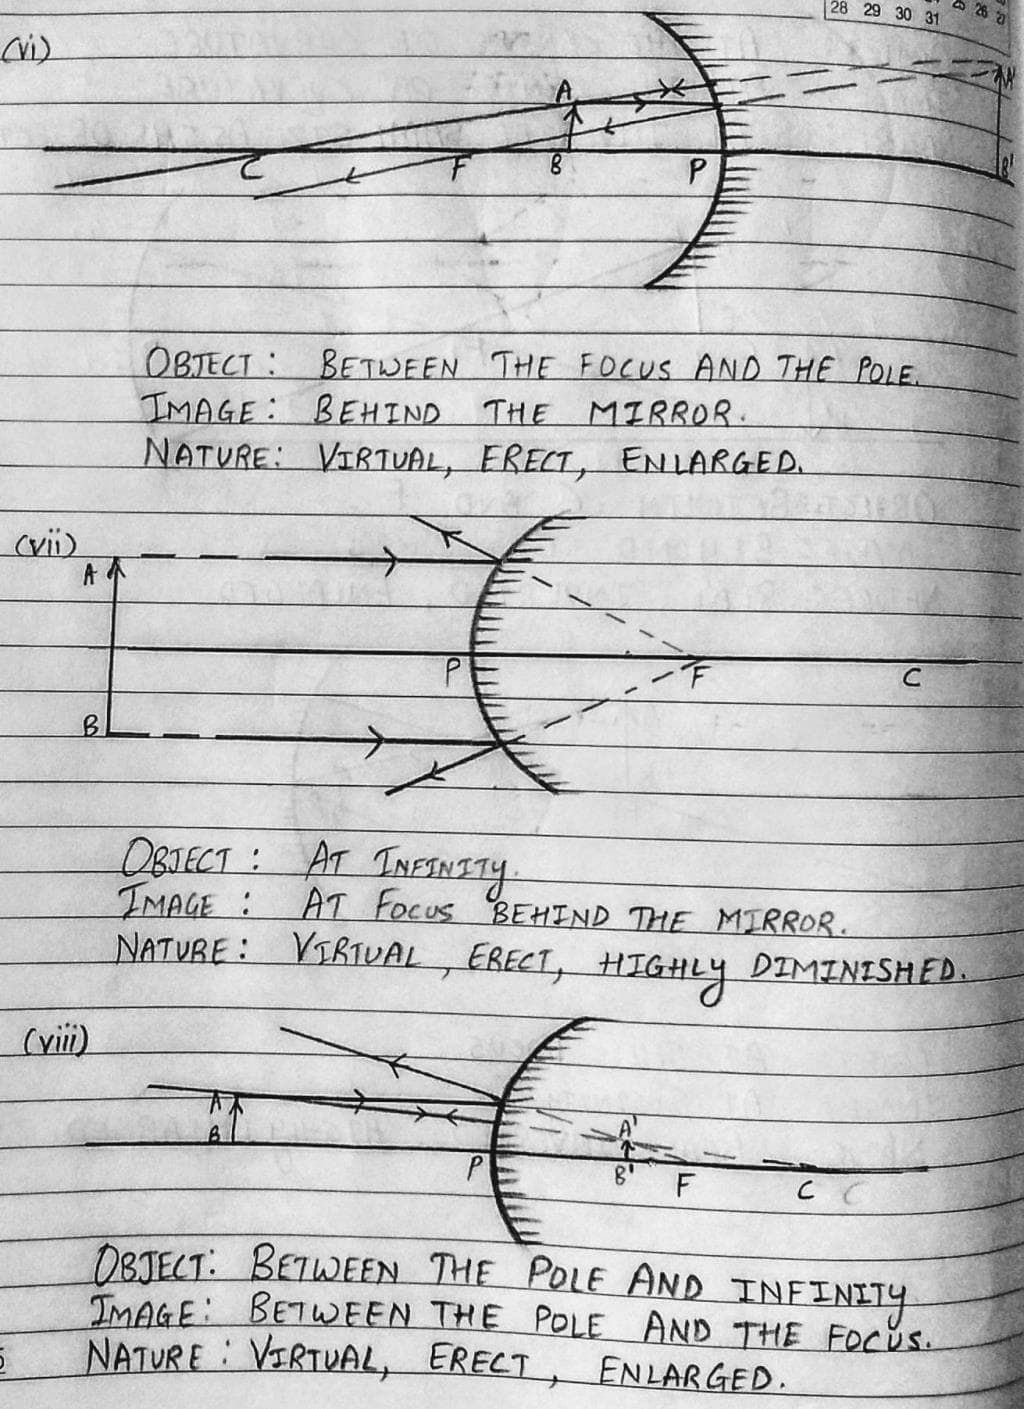 28 29 30 31 25 26 27
(vi)
A A'
C F B P B'
OBJECT: BETWEEN THE FOCUS AND THE POLE.
IMAGE: BEHIND THE MIRROR.
NATURE: VIRTUAL, ERECT, ENLARGED.
(vii)
A
P F C
B
OBJECT: AT INFINITY.
IMAGE: AT FOCUS BEHIND THE MIRROR.
NATURE: VIRTUAL, ERECT, HIGHLY DIMINISHED.
(viii)
A A'
B P B' F C C
OBJECT: BETWEEN THE POLE AND INFINITY
IMAGE: BETWEEN THE POLE AND THE FOCUS.
NATURE: VIRTUAL, ERECT, ENLARGED.